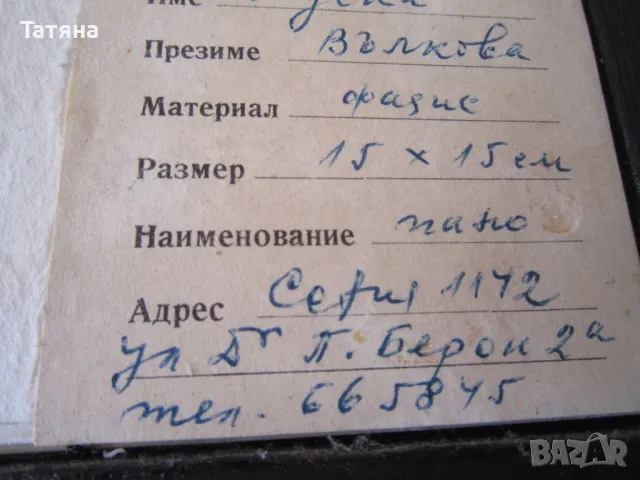 Татяна
Име
Презиме Вълкова
Материал фаянс
Размер 15 х 15 см
Наименование пано
Адрес София 1142
ул Др П. Берон 2а
тел. 665845
BAZAR